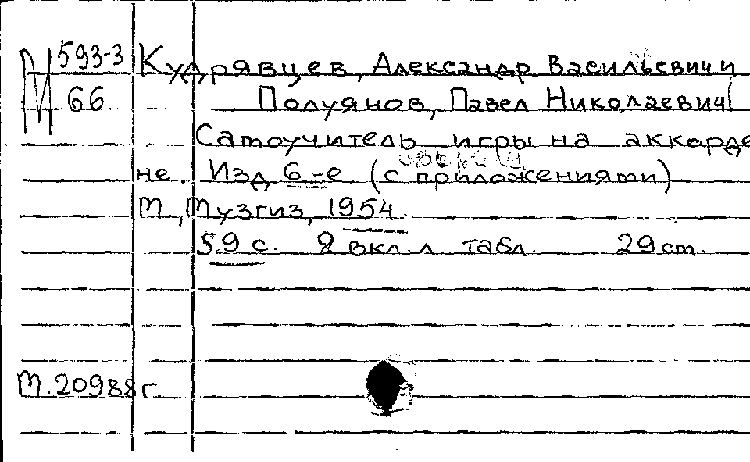 М 593-3
66
Кудрявцев, Александр Васильевич и
Полуянов, Павел Николаевич
Самоучитель игры на аккорде
не. Изд. 6-е (с приложениями)
М., Музгиз, 1954.
59 с. 2 вкл. л. табл. 29 см.
М. 20988 г.